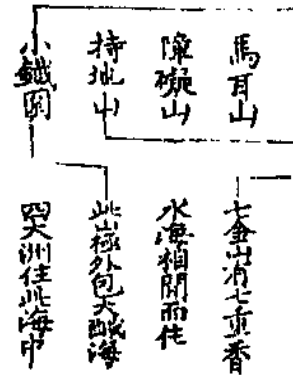 馬耳山
障礙山
持地山
小鐵圍
七金山有七重香
水海相間而住
此山極外包大醎海
四大洲住此海中